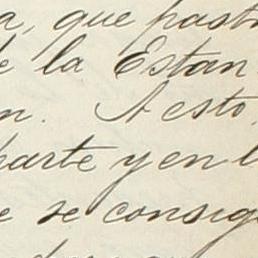 a, que past
e la Estan
n. A esto,
parte y en l
e se consig